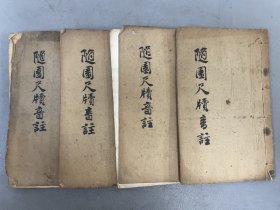 隨園尺牘音註
隨園尺牘音註
隨園尺牘音註
隨園尺牘音註